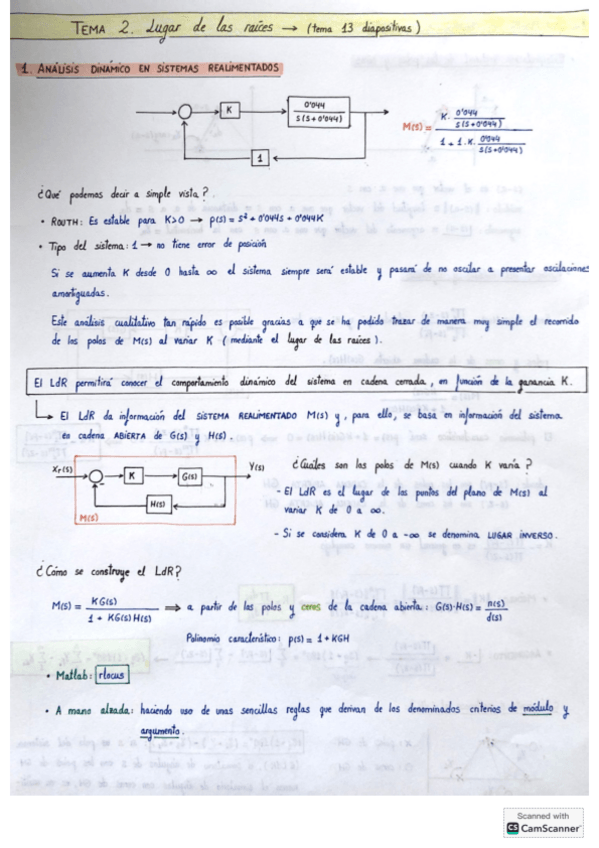 TEMA 2. Lugar de las raíces → (tema 13 diapositivas)
1. ANÁLISIS DINÁMICO EN SISTEMAS REALIMENTADOS
K
0'044
S(S+0'044)
1
M(s) = K · 0'044 / S(S+0'044)
1 + 1·K· 0'044 / S(S+0'044)
¿Qué podemos decir a simple vista?
• ROUTH: Es estable para K>0 → p(s) = s² + 0'044s + 0'044K
• Tipo del sistema: 1 → no tiene error de posición
Si se aumenta K desde 0 hasta ∞ el sistema siempre será estable y pasará de no oscilar a presentar oscilaciones
amortiguadas.
Este análisis cualitativo tan rápido es posible gracias a que se ha podido trazar de manera muy simple el recorrido
de los polos de M(s) al variar K (mediante el lugar de las raíces).
El LdR permitirá conocer el comportamiento dinámico del sistema en cadena cerrada, en función de la ganancia K.
↳ El LdR da información del SISTEMA REALIMENTADO M(s) y, para ello, se basa en información del sistema
en cadena ABIERTA de G(s) y H(s).
Xr(s)
K
G(s)
Y(s)
H(s)
M(s)
¿Cuales son los polos de M(s) cuando K varía?
- El LdR es el lugar de los puntos del plano de M(s) al
variar K de 0 a ∞.
- Si se considera K de 0 a -∞ se denomina LUGAR INVERSO.
¿Cómo se construye el LdR?
M(s) = KG(s) / 1 + KG(s)H(s) ⟹ a partir de los polos y ceros de la cadena abierta: G(s)·H(s) = n(s) / d(s)
Polinomio característico: p(s) = 1 + KGH
• Matlab: rlocus
• A mano alzada: haciendo uso de unas sencillas reglas que derivan de los denominados criterios de módulo y
argumento.
Scanned with
CS CamScanner